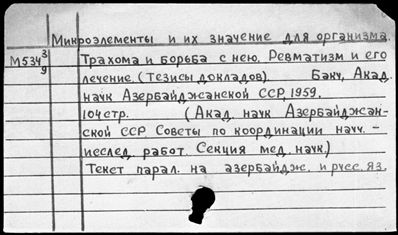 Микроэлементы и их значение для организма.
М534 3/9 Трахома и борьба с нею. Ревматизм и его
лечение. (Тезисы докладов). Баку, Акад.
наук Азербайджанской ССР, 1959.
104 стр. (Акад. наук Азербайджан-
ской ССР. Советы по координации науч. -
исслед. работ. Секция мед. наук.)
Текст парал. на азербайдж. и русс. яз.